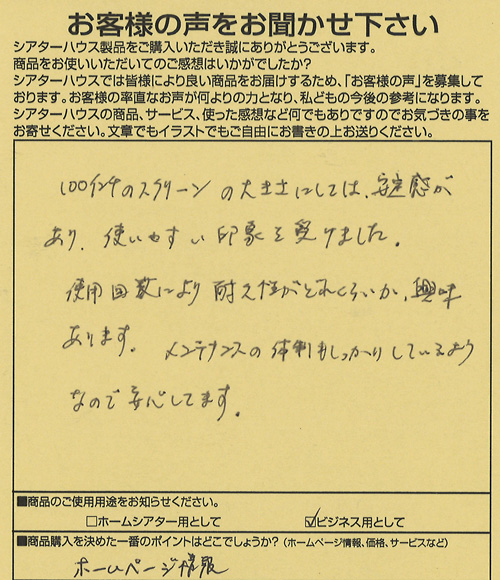 お客様の声をお聞かせ下さい
シアターハウス製品をご購入いただき誠にありがとうございます。
商品をお使いいただいてのご感想はいかがでしたか?
シアターハウスでは皆様により良い商品をお届けするため、「お客様の声」を募集して
おります。お客様の率直なお声が何よりの力となり、私どもの今後の参考になります。
シアターハウスの商品、サービス、使った感想など何でもありですのでお気づきの事を
お寄せください。文章でもイラストでもご自由にお書きの上お送りください。
100インチのスクリーンの大きさにしては、安定感が
あり、使いやすい印象を受けました。
使用回数により耐久性がどれくらいか、興味
あります。メンテナンスの体制もしっかりしているよう
なので安心してます。
■商品のご使用用途をお知らせください。
□ホームシアター用として ☑ビジネス用として
■商品購入を決めた一番のポイントはどこでしょうか?(ホームページ情報、価格、サービスなど)
ホームページ情報